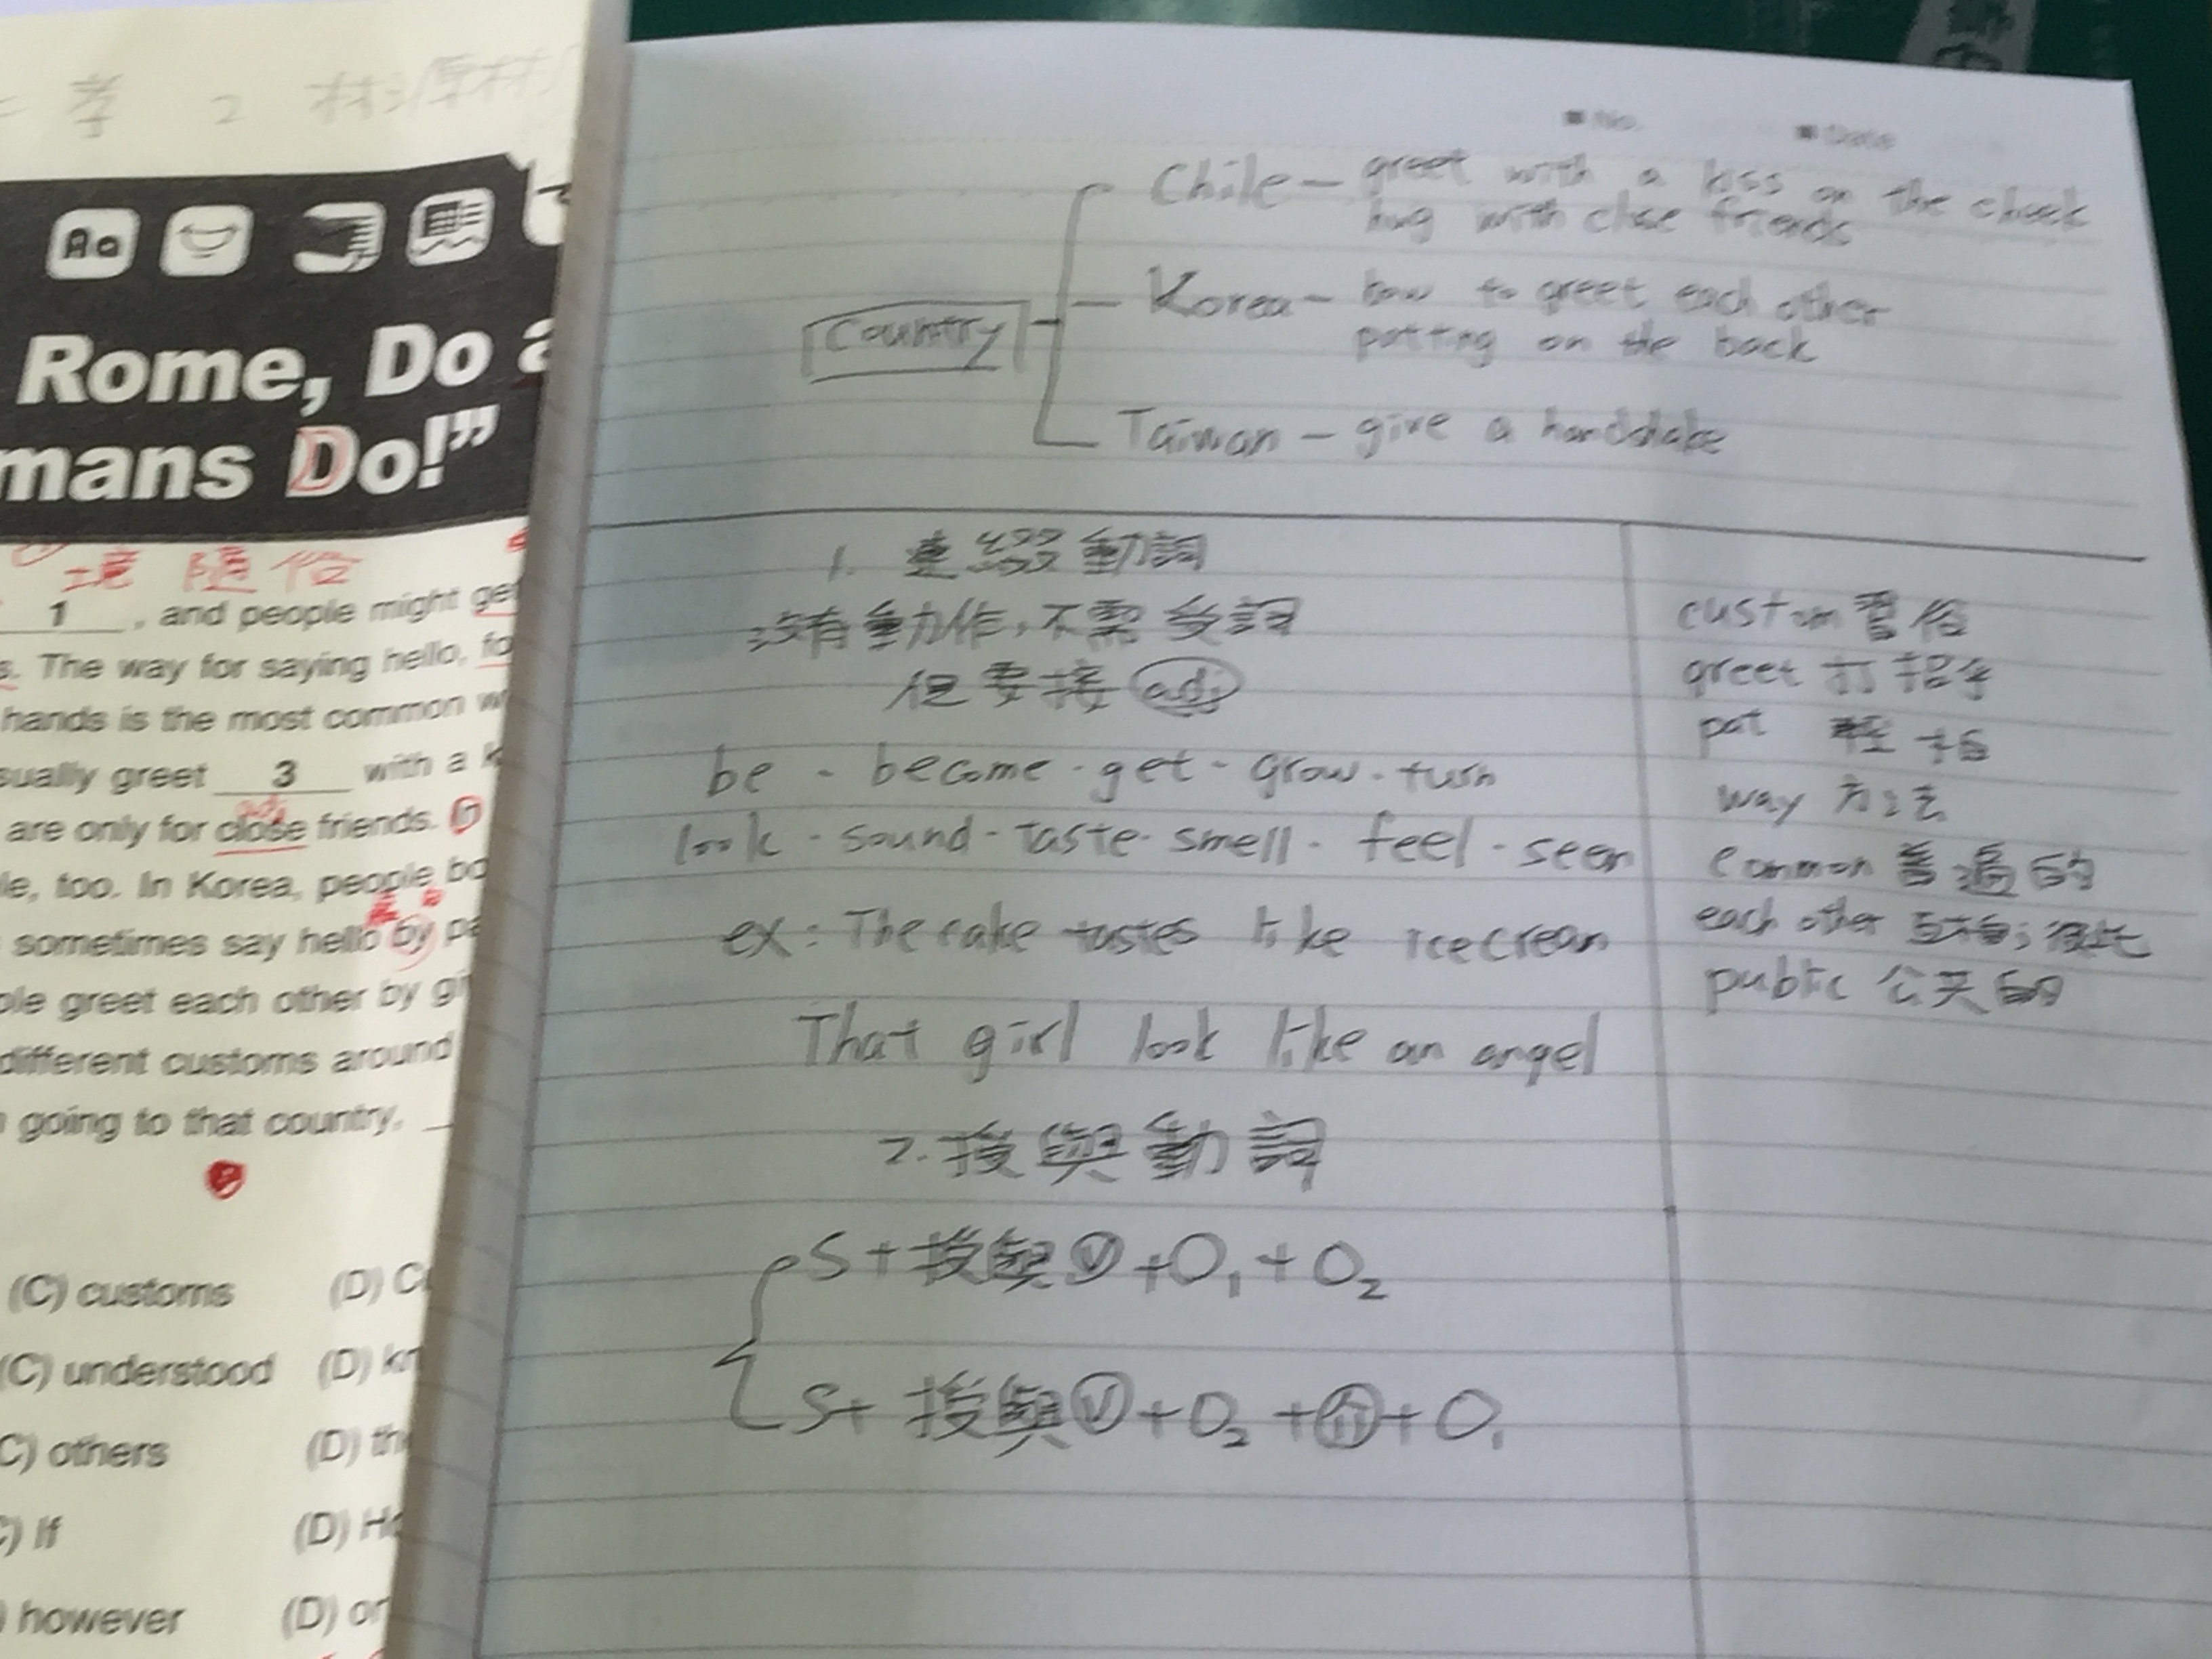 孝 2
Aa
Rome, Do a
mans Do!”
境 隨 俗
1 , and people might ge
s. The way for saying hello, fo
hands is the most common w
sually greet 3 with a k
adj
are only for close friends.
le, too. In Korea, people bo
sometimes say hello by pa
ple greet each other by gi
different customs around
going to that country,
(C) customs (D) C
(C) understood (D) kn
C) others (D) th
) If (D) H
however (D) or
No. Date
Country
Chile – greet with a kiss on the cheek
hug with close friends
Korea – bow to greet each other
patting on the back
Taiwan – give a handshake
1. 連綴動詞
沒有動作,不需受詞
但要接 adj
be - become - get - grow - turn
look - sound - taste - smell - feel - seem
ex: The cake tastes like icecream
That girl look like an angel
2. 授與動詞
S + 授與 V + O1 + O2
S + 授與 V + O2 + 介 + O1
custom 習俗
greet 打招乎
pat 輕拍
way 方法
common 普遍的
each other 互相;彼此
public 公共的